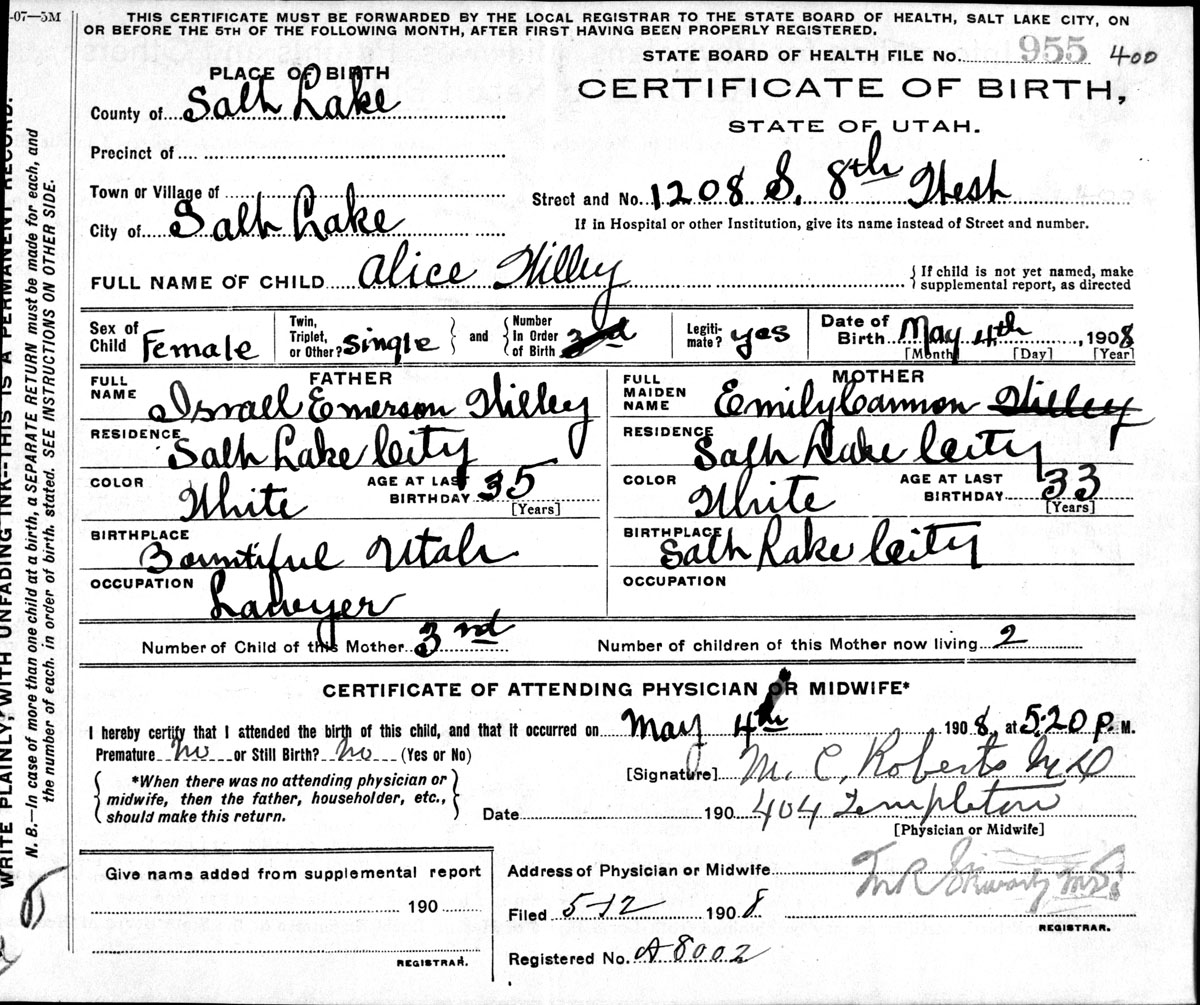 -07—5M
THIS CERTIFICATE MUST BE FORWARDED BY THE LOCAL REGISTRAR TO THE STATE BOARD OF HEALTH, SALT LAKE CITY, ON
OR BEFORE THE 5TH OF THE FOLLOWING MONTH, AFTER FIRST HAVING BEEN PROPERLY REGISTERED.
STATE BOARD OF HEALTH FILE No. 955 400
PLACE OF BIRTH
CERTIFICATE OF BIRTH,
STATE OF UTAH.
County of Salt Lake
Precinct of
Town or Village of
Street and No. 1208 S. 8th West
City of Salt Lake
If in Hospital or other Institution, give its name instead of Street and number.
FULL NAME OF CHILD Alice Willey
{ If child is not yet named, make
supplemental report, as directed
Sex of Child Female
Twin, Triplet, or Other? Single
and
Number In Order of Birth 3rd
Legiti- mate? yes
Date of Birth May 4th, 1908
[Month] [Day] [Year]
FATHER
FULL NAME Israel Emerson Willey
RESIDENCE Salt Lake City
COLOR White AGE AT LAST BIRTHDAY 35 [Years]
BIRTHPLACE Bountiful Utah
OCCUPATION Lawyer
MOTHER
FULL MAIDEN NAME Emily Cannon Willey
RESIDENCE Salt Lake City
COLOR White AGE AT LAST BIRTHDAY 33 [Years]
BIRTHPLACE Salt Lake City
OCCUPATION
Number of Child of this Mother 3rd Number of children of this Mother now living 2
CERTIFICATE OF ATTENDING PHYSICIAN OR MIDWIFE*
I hereby certify that I attended the birth of this child, and that it occurred on May 4th 1908, at 5:20 P. M.
Premature No or Still Birth? No (Yes or No)
{ *When there was no attending physician or
midwife, then the father, householder, etc.,
should make this return. }
[Signature] M. C. Roberts M D
Date 190 404 Templeton
[Physician or Midwife]
Give name added from supplemental report
190
REGISTRAR.
Address of Physician or Midwife
Filed 5-12 1908
REGISTRAR.
Registered No. A8002
WRITE PLAINLY, WITH UNFADING INK--THIS IS A PERMANENT RECORD.
N. B.—In case of more than one child at a birth, a SEPARATE RETURN must be made for each, and
the number of each, in order of birth, stated. SEE INSTRUCTIONS ON OTHER SIDE.